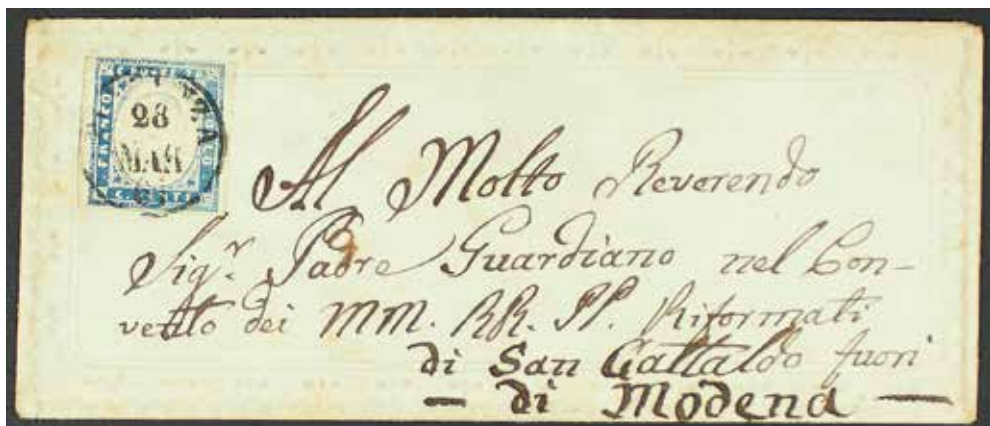 28
MAR
Al Molto Reverendo
Sig.r Padre Guardiano nel Con-
vento dei MM. RR. PP. Riformati
di San Cattaldo fuori
— di Modena —